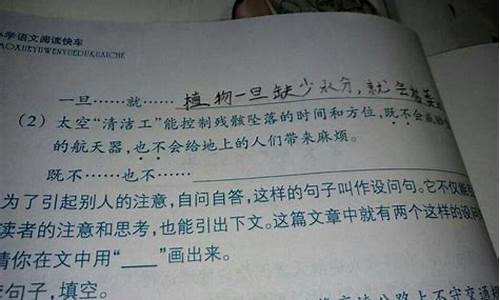 学语文阅读快车
AOXUEYUWENYUEDUKUAICHE
一旦……就…… 植物一旦缺少水分，就会
(2) 太空“清洁工”能控制残骸坠落的时间和方位，既不会
的航天器，也不会给地上的人们带来麻烦。
既不……也不……
为了引起别人的注意，自问自答，这样的句子叫作设问句。它不仅能
读者的注意和思考，也能引出下文。这篇文章中就有两个这样的设问
请你在文中用“____”画出来。
句子，填空。
公路上不守交通